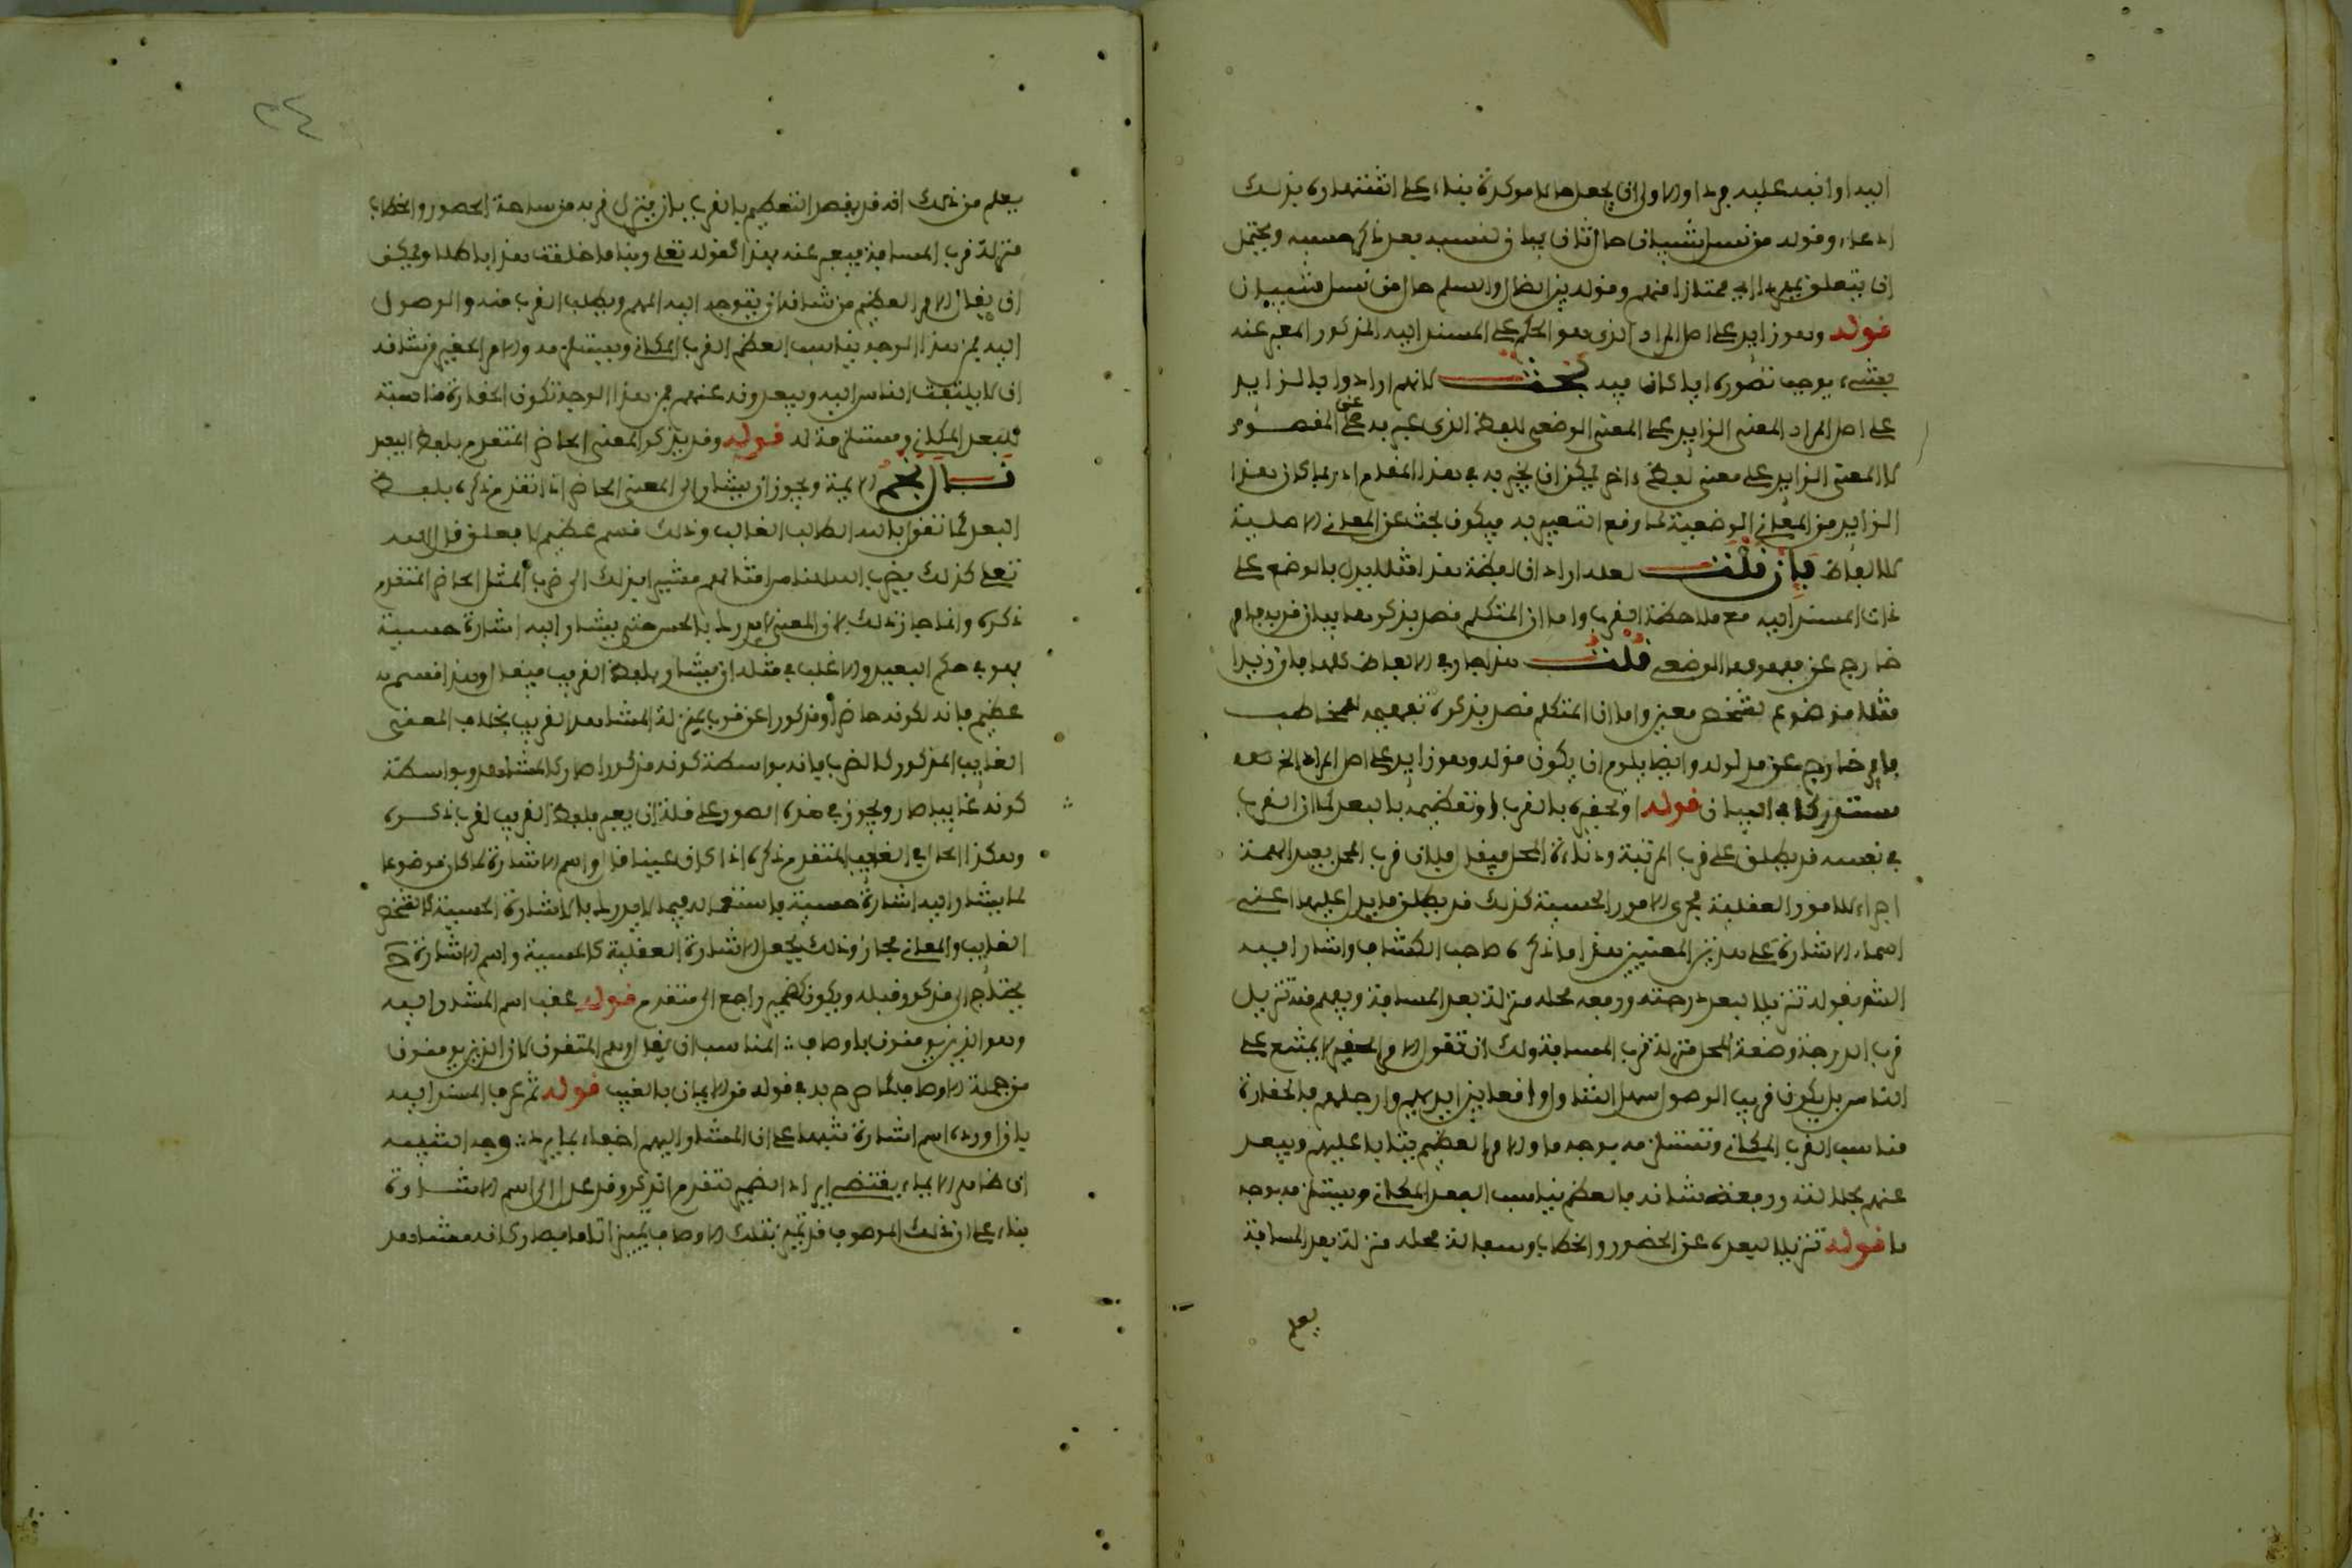 اليه او انبه عليه مرة او الاولى ان يجعل حالا موكدة بناء على اشتهاره بذلك
ادعاء وقوله من نسل شيبان حال ثان بيان لنسبه بعد ذكر حسبه ويحتمل
ان يتعلق بفردا اي ممتازا منهم وقوله بين الضال والسلم حال من نسل شيبان
قوله وهو زايد على اصل المراد الذي هو الحكم على المسند اليه المذكور المعبر عنه
بشيء يوجب تصوره ايا كان فيه بحث لانهم ارادوا بالزايد
على اصل المراد المعنى الزايد على المعنى الوضعي للفظ الذي عبر به عن المقصود
لا المعنى الزايد على معنى لفظ ءاخر يمكن ان يخبر به في هذا المقام اذ ربما كان هذا
الزايد من المعاني الوضعية لما وقع التعبير به فيكون بحثه عن المعاني الاصلية
للالفاظ فان قلت لعله اراد ان لفظة هذا مثلا يدل بالوضع على
ذات المسند اليه مع ملاحظة القرب واما ان المتكلم قصد بذكرها بيان قربه فامر
خارج عن مفهومها الوضعي قلت هذا جار في الالفاظ كلها فان زيدا
مثلا موضوع لشخص معين واما ان المتكلم قصد بذكره تفهيمه للمخاطب
فامر خارج عن مدلوله وايضا يلزم ان يكون قوله وهو زايد على اصل المراد الخ
مستدركا في البيان قوله او تحقيره بالقرب او تعظيمه بالبعد كما ان القرب
في نفسه قد يطلق على قرب المرتبة ودناءة المحل فيقال فلان قريب المحل بعيد الهمة
اجراء للامور العقلية مجرى الامور الحسية كذلك قد يطلق ما يدل عليها اعني
اسماء الاشارة على هذين المعنيين هذا ما ذكره صاحب الكشاف واشار اليه
الشرح بقوله تنزيلا لبعد درجته ورفعة محله منزلة بعد المسافة ويعلم منه تنزيل
قرب الدرجة وضعة المحل منزلة قرب المسافة ولك ان تقول الامر الحقير لا يمتنع على
الناس بل يكون قريب الوصول سهل التناول واقعا بين ايديهم وارجلهم فالحقارة
مناسب القرب المكاني وتستلزمه بوجه ما والامر العظيم يتابا عليهم ويبعد
عنهم لجلالته ورفعة شانه فالعظم يناسب البعد المكاني ويستلزمه بوجه
ما قوله تنزيلا لبعده عن الحضور والخطاب وسفالة محله منزلة بعد المسافة
يعلم
٣٤
يعلم من ذلك انه قد يقصد التعظيم بالقرب بان ينزل قربه من ساحة الحضور والخطاب
منزلة قرب المسافة فيعبر عنه بهذا كقوله تعلى ربنا ما خلقت هذا باطلا ويمكن
ان يقال الامر العظيم من شانه ان يتوجه اليه الهمم ويطلب القرب منه والوصول
اليه فمن هذا الوجه يناسب العظم القرب المكاني ويستلزمه والامر الحقير من شانه
ان لا يلتفت الناس اليه ويبعدونه عنهم فمن هذا الوجه تكون الحقارة مناسبة
للبعد المكاني ومستلزمة له قوله وقد يذكر المعنى الحاضر المتقدم بلفظ البعد
قال نجم الايمة ويجوز ان يشار الى المعنى الحاضر اذا تقدم ذكره بلفظ
البعد كما تقول بالله الطالب الغالب وذلك قسم عظيم لافعلن قال الله
تعلى كذلك يضرب الله للناس امثالهم مشيرا بذلك الى ضرب المثل الحاضر المتقدم
ذكره وانما جاز ذلك لان المعنى لا يدرك بالحس حتى يشار اليه اشارة حسية
فهو في حكم البعيد والاغلب في مثله ان يشار بلفظ القريب فيقال وهذا قسم
عظيم فانه لكونه حاضرا ومذكورا عن قرب بمنزلة المشاهد القريب بخلاف المعنى
الغايب المذكور كالضرب فانه بواسطة كونه مذكورا صار كالمشاهد وبواسطة
كونه غايبا صار ويجوز في هذه الصور على قلة ان يعبر بلفظ القريب لقرب ذكره
وهكذا الحال في الغايب المتقدم ذكره اذا كان عينا قال واسم الاشارة لما كان موضوعا
لما يشار اليه اشارة حسية فاستعماله فيما لا يدرك بالاشارة الحسية كالشخص
الغايب والمعاني مجاز وذلك بجعل الاشارة العقلية كالحسية واسم الاشارة ح
يحتاج الى مذكور قبله ويكون كضمير راجع الى متقدم قوله عقب اسم المشار اليه
وهو الذين يومنون باوصاف المناسب ان يقال وهم المتقون لان الذين يومنون
من جملة الاوصاف كما صرح به في قوله من الايمان بالغيب قوله ثم عرف المسند اليه
بان اورده اسم اشارة تنبيها على ان المشار اليهم احقاء بما يرد وجه التنبيه
ان ظاهر الايماء يقتضي ايراد الضمير لتقدم الذكر وقد عدل الى اسم الاشارة
بناء على ان ذلك الموصوف قد تميز بتلك الاوصاف تميزا تاما فصار كانه مشاهد